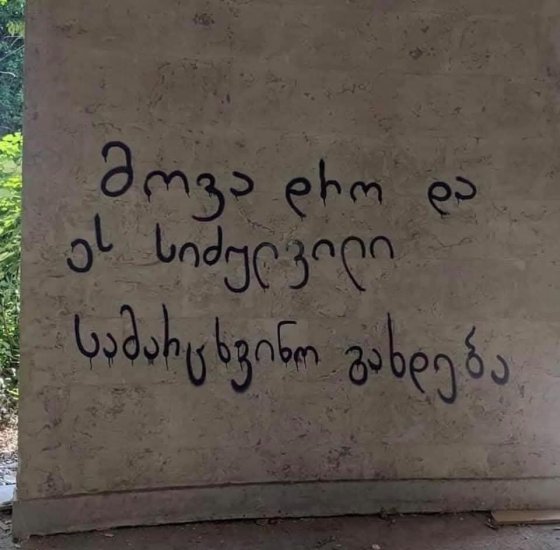 მოვა დრო და
ეს სიძულვილი
სამარცხვინო გახდება